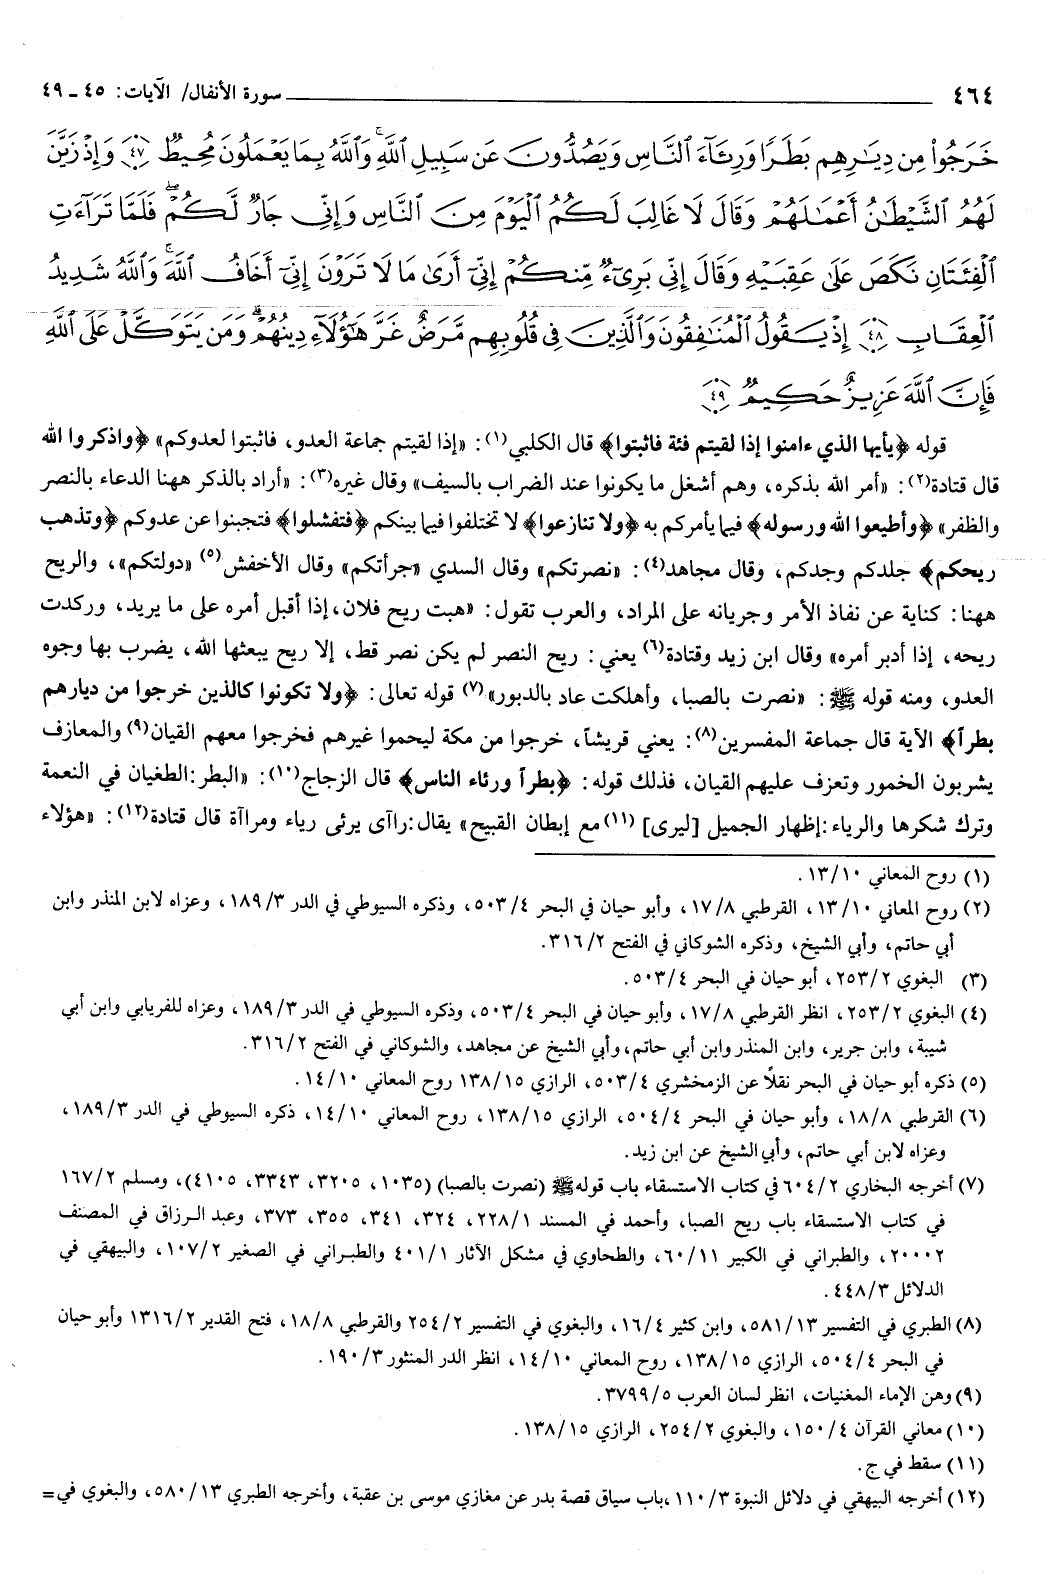 ٤٦٤ ــــــ سورة الأنفال/ الآيات: ٤٥ ـ ٤٩
خَرَجُوا۟ مِن دِيَـٰرِهِم بَطَرًا وَرِئَآءَ ٱلنَّاسِ وَيَصُدُّونَ عَن سَبِيلِ ٱللَّهِ ۚ وَٱللَّهُ بِمَا يَعْمَلُونَ مُحِيطٌ ﴿٤٧﴾ وَإِذْ زَيَّنَ
لَهُمُ ٱلشَّيْطَـٰنُ أَعْمَـٰلَهُمْ وَقَالَ لَا غَالِبَ لَكُمُ ٱلْيَوْمَ مِنَ ٱلنَّاسِ وَإِنِّى جَارٌ لَّكُمْ ۖ فَلَمَّا تَرَآءَتِ
ٱلْفِئَتَانِ نَكَصَ عَلَىٰ عَقِبَيْهِ وَقَالَ إِنِّى بَرِىٓءٌ مِّنكُمْ إِنِّىٓ أَرَىٰ مَا لَا تَرَوْنَ إِنِّىٓ أَخَافُ ٱللَّهَ ۚ وَٱللَّهُ شَدِيدُ
ٱلْعِقَابِ ﴿٤٨﴾ إِذْ يَقُولُ ٱلْمُنَـٰفِقُونَ وَٱلَّذِينَ فِى قُلُوبِهِم مَّرَضٌ غَرَّ هَـٰٓؤُلَآءِ دِينُهُمْ ۗ وَمَن يَتَوَكَّلْ عَلَى ٱللَّهِ
فَإِنَّ ٱللَّهَ عَزِيزٌ حَكِيمٌ ﴿٤٩﴾
قوله ﴿يأيها الذي ءامنوا إذا لقيتم فئة فاثبتوا﴾ قال الكلبي(١): «إذا لقيتم جماعة العدو، فاثبتوا لعدوكم» ﴿واذكروا الله
قال قتادة(٢): «أمر الله بذكره، وهم أشغل ما يكونوا عند الضراب بالسيف» وقال غيره(٣): «أراد بالذكر ههنا الدعاء بالنصر
والظفر» ﴿وأطيعوا الله ورسوله﴾ فيما يأمركم به ﴿ولا تنازعوا﴾ لا تختلفوا فيما بينكم ﴿فتفشلوا﴾ فتجبنوا عن عدوكم ﴿وتذهب
ريحكم﴾ جلدكم وجدكم، وقال مجاهد(٤): «نصرتكم» وقال السدي «جرأتكم» وقال الأخفش(٥) «دولتكم»، والريح
ههنا: كناية عن نفاذ الأمر وجريانه على المراد، والعرب تقول: «هبت ريح فلان،إذا أقبل أمره على ما يريد، وركدت
ريحه، إذا أدبر أمره» وقال ابن زيد وقتادة(٦) يعني: ريح النصر لم يكن نصر قط، إلا ريح يبعثها الله، يضرب بها وجوه
العدو، ومنه قوله ﷺ: «نصرت بالصبا، وأهلكت عاد بالدبور»(٧) قوله تعالى: ﴿ولا تكونوا كالذين خرجوا من ديارهم
بطراً﴾ الآية قال جماعة المفسرين(٨): يعني قريشاً، خرجوا من مكة ليحموا غيرهم فخرجوا معهم القيان(٩) والمعازف
يشربون الخمور وتعزف عليهم القيان، فذلك قوله: ﴿بطراً ورئاء الناس﴾ قال الزجاج(١٠): «البطر:الطغيان في النعمة
وترك شكرها والرياء:إظهار الجميل [ليرى](١١) مع إبطان القبيح» يقال:راآى يرئى رياء ومراآة قال قتادة(١٢): «هؤلاء
(١) روح المعاني ١٣/١٠.
(٢) روح المعاني ١٣/١٠، القرطبي ١٧/٨، وأبو حيان في البحر ٥٠٣/٤، وذكره السيوطي في الدر ١٨٩/٣، وعزاه لابن المنذر وابن
أبي حاتم، وأبي الشيخ، وذكره الشوكاني في الفتح ٣١٦/٢.
(٣) البغوي ٢٥٣/٢، أبو حيان في البحر ٥٠٣/٤.
(٤) البغوي ٢٥٣/٢، انظر القرطبي ١٧/٨، وأبو حيان في البحر ٥٠٣/٤، وذكره السيوطي في الدر ١٨٩/٣، وعزاه للفريابي وابن أبي
شيبة، وابن جرير، وابن المنذر وابن أبي حاتم،وأبي الشيخ عن مجاهد، والشوكاني في الفتح ٣١٦/٢.
(٥) ذكره أبو حيان في البحر نقلاً عن الزمخشري ٥٠٣/٤، الرازي ١٣٨/١٥ روح المعاني ١٤/١٠.
(٦) القرطبي ١٨/٨، وأبو حيان في البحر ٥٠٤/٤، الرازي ١٣٨/١٥، روح المعاني ١٤/١٠، ذكره السيوطي في الدر ١٨٩/٣،
وعزاه لابن أبي حاتم، وأبي الشيخ عن ابن زيد.
(٧) أخرجه البخاري ٦٠٤/٢ في كتاب الاستسقاء باب قوله ﷺ (نصرت بالصبا) (١٠٣٥، ٣٢٠٥، ٣٣٤٣، ٤١٠٥)، ومسلم ١٦٧/٢
في كتاب الاستسقاء باب ريح الصبا، وأحمد في المسند ٢٢٨/١، ٣٢٤، ٣٤١، ٣٥٥، ٣٧٣، وعبد الرزاق في المصنف
٢٠٠٠٢، والطبراني في الكبير ٦٠/١١، والطحاوي في مشكل الآثار ٤٠١/١ والطبراني في الصغير ١٠٧/٢، والبيهقي في
الدلائل ٤٤٨/٣.
(٨) الطبري في التفسير ٥٨١/١٣، وابن كثير ١٦/٤، والبغوي في التفسير ٢٥٤/٢ والقرطبي ١٨/٨، فتح القدير ١٣١٦/٢ وأبو حيان
في البحر ٥٠٤/٤، الرازي ١٣٨/١٥، روح المعاني ١٤/١٠، انظر الدر المنثور ١٩٠/٣.
(٩) وهن الإماء المغنيات، انظر لسان العرب ٣٧٩٩/٥.
(١٠) معاني القرآن ١٥٠/٤، والبغوي ٢٥٤/٢، الرازي ١٣٨/١٥.
(١١) سقط في ج.
(١٢) أخرجه البيهقي في دلائل النبوة ١١٠/٣،باب سياق قصة بدر عن مغازي موسى بن عقبة، وأخرجه الطبري ٥٨٠/١٣، والبغوي في=